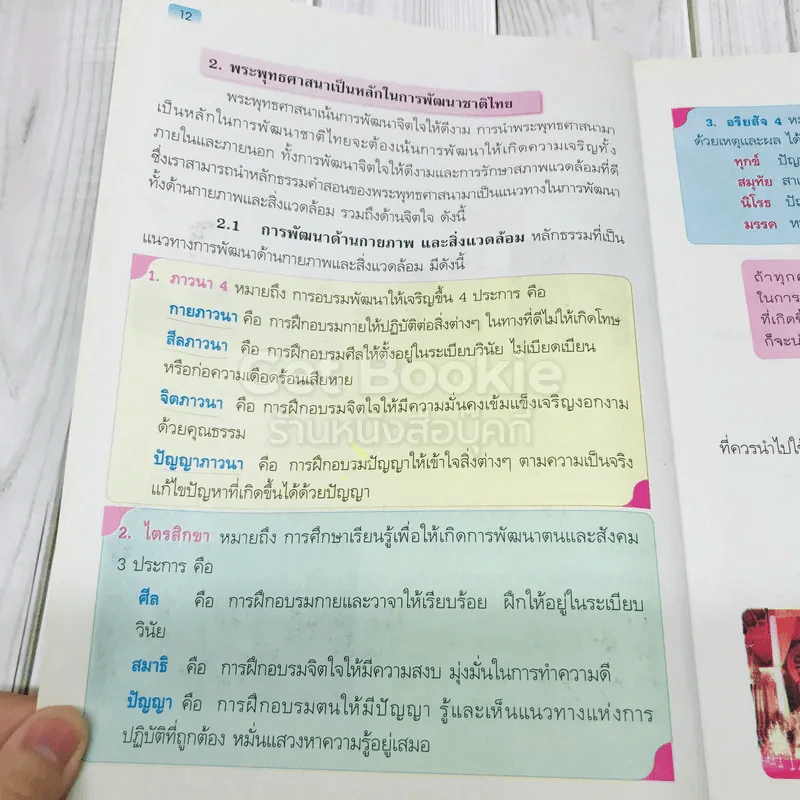 12
2. พระพุทธศาสนาเป็นหลักในการพัฒนาชาติไทย
พระพุทธศาสนาเน้นการพัฒนาจิตใจให้ดีงาม การนำพระพุทธศาสนามา
เป็นหลักในการพัฒนาชาติไทยจะต้องเน้นการพัฒนาให้เกิดความเจริญทั้ง
ภายในและภายนอก ทั้งการพัฒนาจิตใจให้ดีงามและการรักษาสภาพแวดล้อมที่ดี
ซึ่งเราสามารถนำหลักธรรมคำสอนของพระพุทธศาสนามาเป็นแนวทางในการพัฒนา
ทั้งด้านกายภาพและสิ่งแวดล้อม รวมถึงด้านจิตใจ ดังนี้
2.1 การพัฒนาด้านกายภาพ และสิ่งแวดล้อม หลักธรรมที่เป็น
แนวทางการพัฒนาด้านกายภาพและสิ่งแวดล้อม มีดังนี้
1. ภาวนา 4 หมายถึง การอบรมพัฒนาให้เจริญขึ้น 4 ประการ คือ
กายภาวนา คือ การฝึกอบรมกายให้ปฏิบัติต่อสิ่งต่างๆ ในทางที่ดีไม่ให้เกิดโทษ
สีลภาวนา คือ การฝึกอบรมศีลให้ตั้งอยู่ในระเบียบวินัย ไม่เบียดเบียน
หรือก่อความเดือดร้อนเสียหาย
จิตภาวนา คือ การฝึกอบรมจิตใจให้มีความมั่นคงเข้มแข็งเจริญงอกงาม
ด้วยคุณธรรม
ปัญญาภาวนา คือ การฝึกอบรมปัญญาให้เข้าใจสิ่งต่างๆ ตามความเป็นจริง
แก้ไขปัญหาที่เกิดขึ้นได้ด้วยปัญญา
Get Bookie
ร้านหนังสือบุ๊คกี้
2. ไตรสิกขา หมายถึง การศึกษาเรียนรู้เพื่อให้เกิดการพัฒนาตนและสังคม
3 ประการ คือ
ศีล คือ การฝึกอบรมกายและวาจาให้เรียบร้อย ฝึกให้อยู่ในระเบียบ
วินัย
สมาธิ คือ การฝึกอบรมจิตใจให้มีความสงบ มุ่งมั่นในการทำความดี
ปัญญา คือ การฝึกอบรมตนให้มีปัญญา รู้และเห็นแนวทางแห่งการ
ปฏิบัติที่ถูกต้อง หมั่นแสวงหาความรู้อยู่เสมอ
3. อริยสัจ 4
ด้วยเหตุและผล
ทุกข์
สมุทัย
นิโรธ
มรรค
ถ้าทุก
ในการ
ที่เกิด
ก็จะ
ที่ควรนำไปใช้